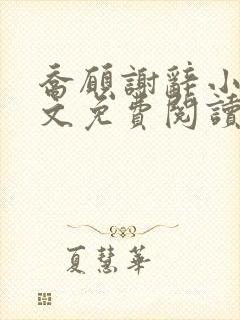 喬願謝辭小
文免費閱讀
夏慧華